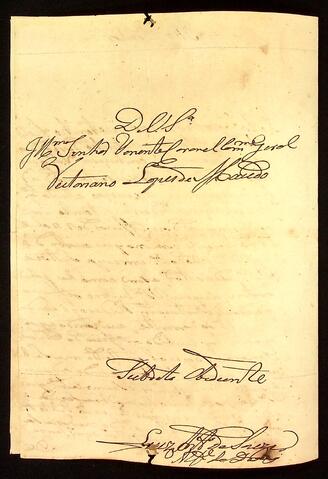 De V. S.ª
Ill.mo Senhor Tenente Coronel Com.e Geral
Victoriano Lopes de Macedo
Subdito Obediente
Luiz de Souza